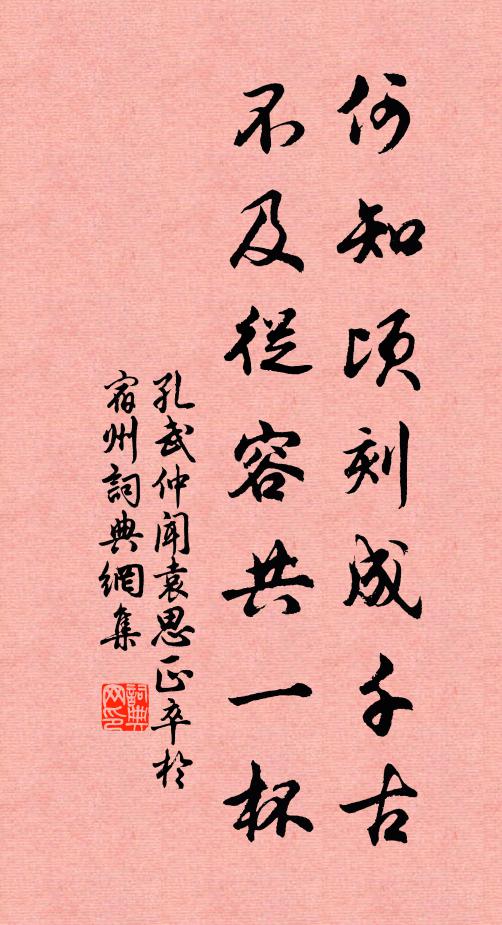 何知頃刻成千古
不及從容共一杯
孔武仲聞袁思正卒於
宿州詞典網集
詞典网印